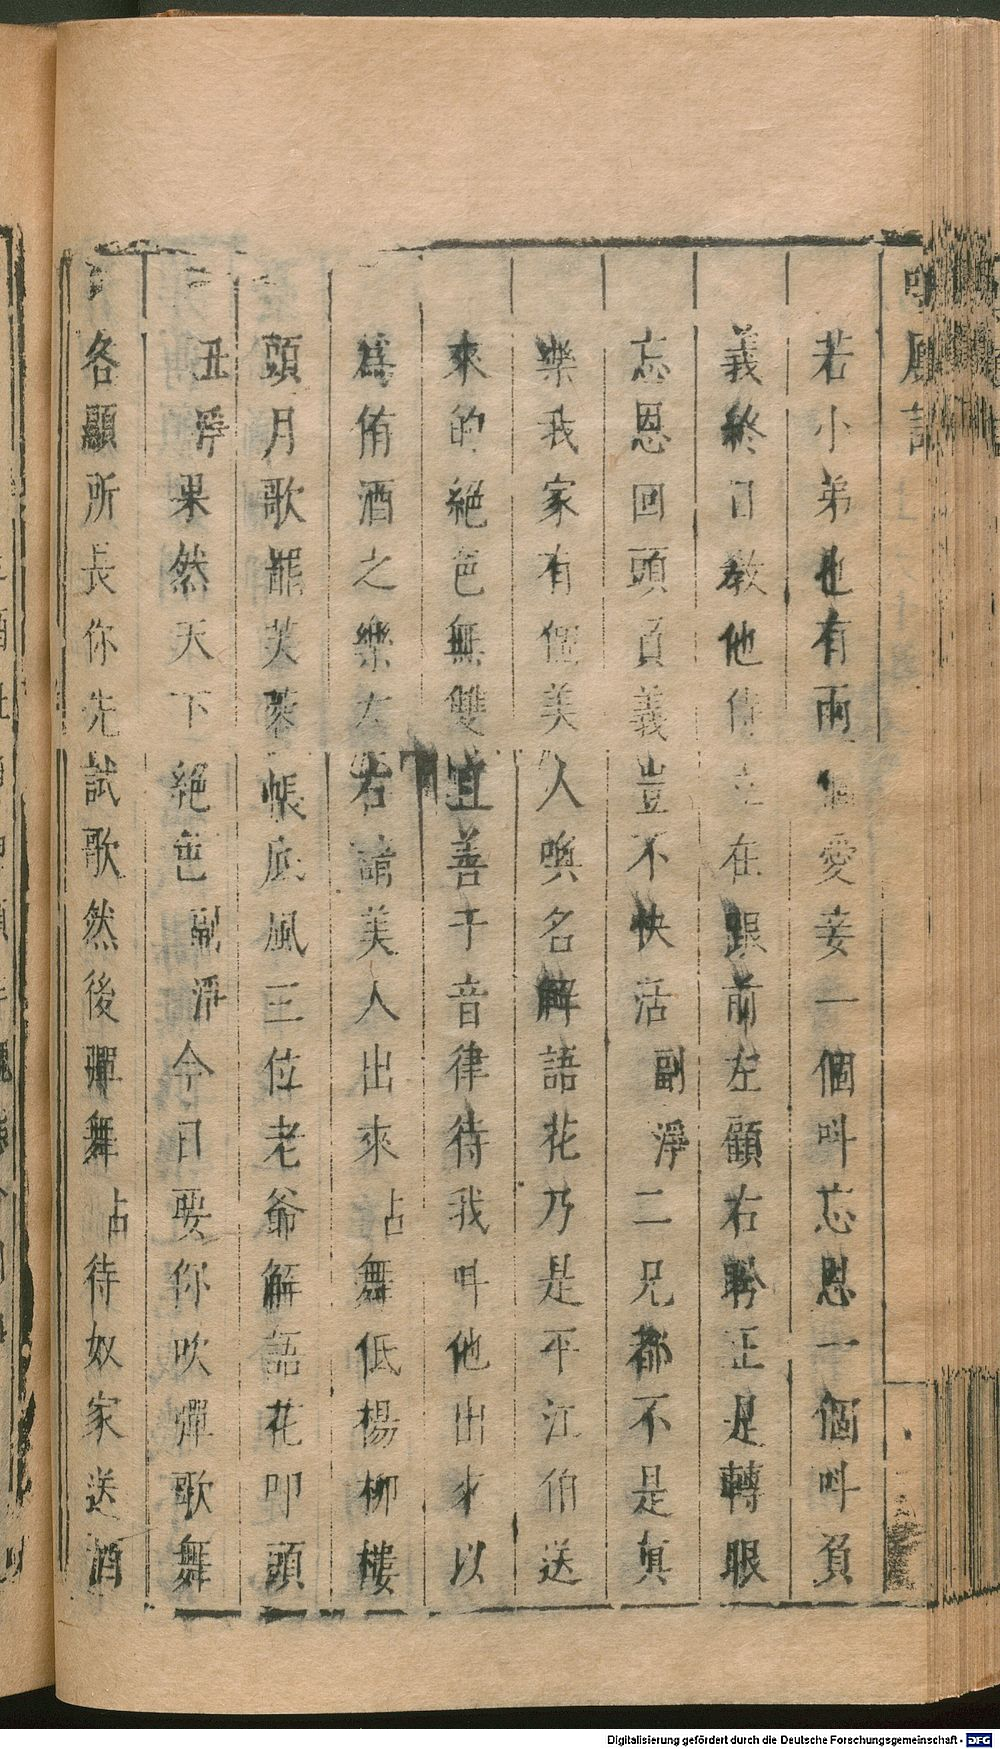 若小弟也有兩個愛妾一個呌忘恩一個呌負
義終日敎他侍立在跟前左顧右盼正是轉眼
忘恩回頭負義豈不快活副淨二兄都不是眞
樂我家有個美人喚名解語花乃是平江伯送
來的絕色無雙宜善于音律待我呌他出來以
爲侑酒之樂左右請美人出來占舞低楊柳樓
頭月歌罷芙蓉帳底風三位老爺解語花叩頭
丑淨果然天下絕色副淨今日要你吹彈歌舞
各顯所長你先試歌然後彈舞占待奴家送酒
Digitalisierung gefördert durch die Deutsche Forschungsgemeinschaft - DFG